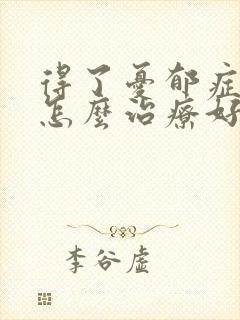 得了憂郁症
怎麼治療好
李谷虛